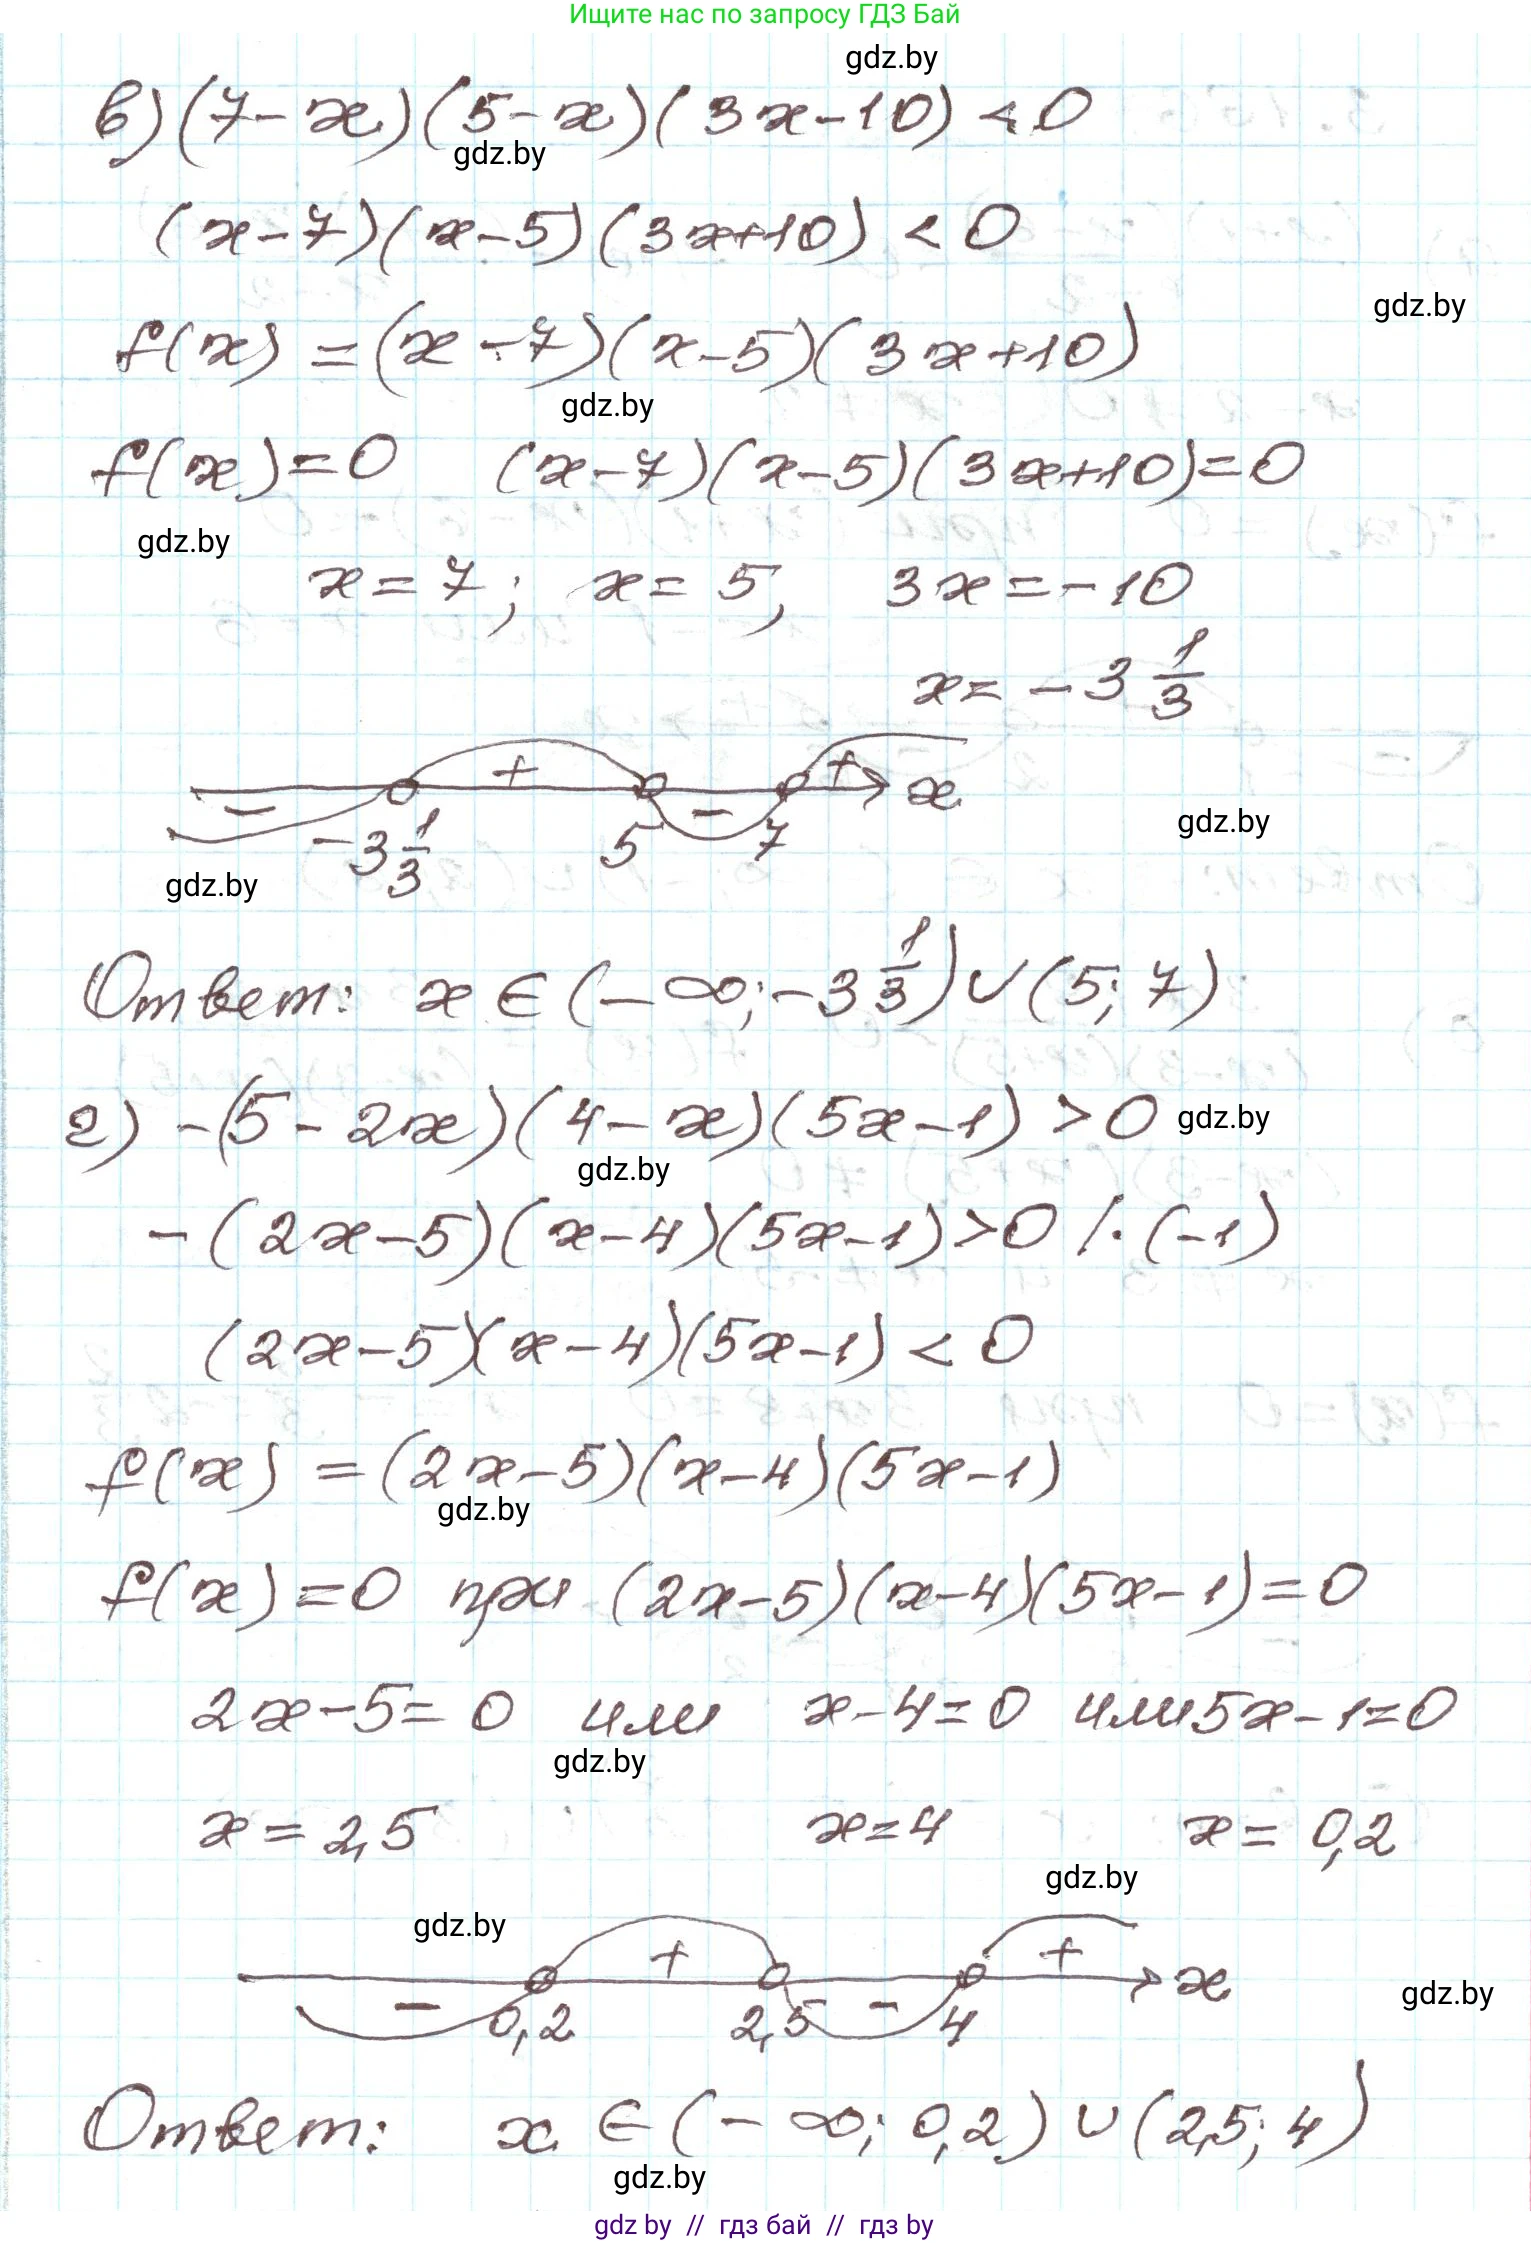 Ищите нас по запросу ГДЗ Бай
gdz.by
в) (7-x)(5-x)(3x-10)<0
gdz.by
(x-7)(x-5)(3x+10)<0
gdz.by
f(x)=(x-7)(x-5)(3x+10)
gdz.by
f(x)=0 (x-7)(x-5)(3x+10)=0
gdz.by
x=7; x=5, 3x=-10
x=-3 1/3
- + - + x
-3 1/3 5 7
gdz.by
gdz.by
Ответ: x∈(-∞;-3 1/3)∪(5;7)
г) -(5-2x)(4-x)(5x-1)>0
gdz.by
gdz.by
-(2x-5)(x-4)(5x-1)>0 /·(-1)
(2x-5)(x-4)(5x-1)<0
f(x)=(2x-5)(x-4)(5x-1)
gdz.by
f(x)=0 при (2x-5)(x-4)(5x-1)=0
2x-5=0 или x-4=0 или 5x-1=0
gdz.by
x=2,5 x=4 x=0,2
gdz.by
gdz.by
- + - + x
gdz.by
0,2 2,5 4
Ответ: x∈(-∞;0,2)∪(2,5;4)
gdz.by
gdz by // гдз бай // гдз by